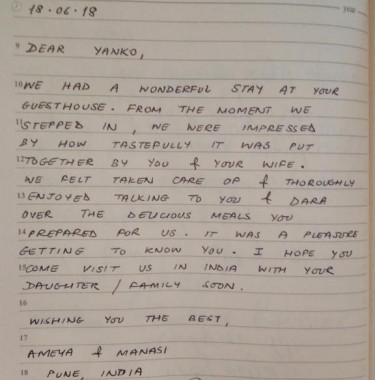 18.06.18
9 DEAR YANKO,
10 WE HAD A WONDERFUL STAY AT YOUR
GUESTHOUSE. FROM THE MOMENT WE
11 STEPPED IN, WE WERE IMPRESSED
BY HOW TASTEFULLY IT WAS PUT
12 TOGETHER BY YOU & YOUR WIFE.
WE FELT TAKEN CARE OF & THOROUGHLY
13 ENJOYED TALKING TO YOU & DARA
OVER THE DELICIOUS MEALS YOU
14 PREPARED FOR US. IT WAS A PLEASURE
GETTING TO KNOW YOU. I HOPE YOU
15 COME VISIT US IN INDIA WITH YOUR
DAUGHTER / FAMILY SOON.
16
WISHING YOU THE BEST,
17
AMEYA & MANASI
18 PUNE, INDIA